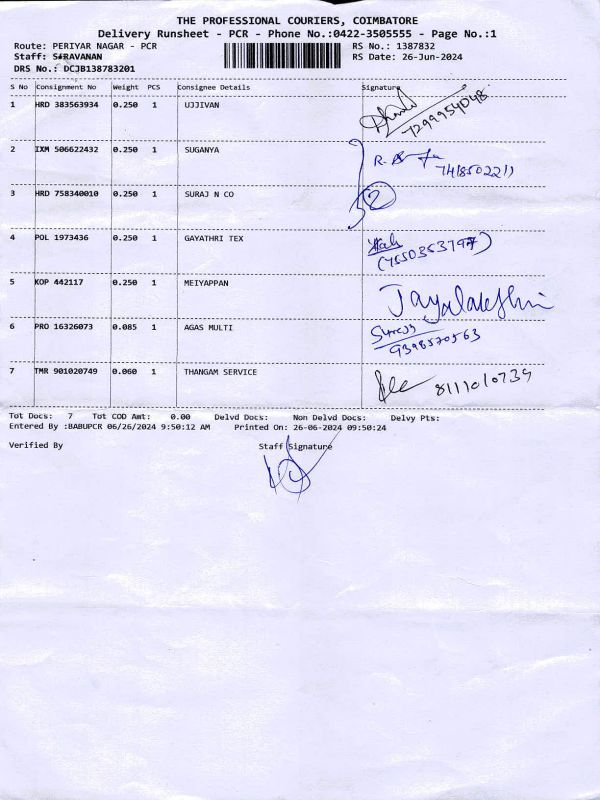 THE PROFESSIONAL COURIERS, COIMBATORE
Delivery Runsheet - PCR - Phone No.:0422-3505555 - Page No.:1
Route: PERIYAR NAGAR - PCR RS No.: 1387832
Staff: SARAVANAN RS Date: 26-Jun-2024
DRS No.: DCJB138783201
S No Consignment No Weight PCS Consignee Details Signature
1 HRD 383563934 0.250 1 UJJIVAN
7299954048
2 IXM 506622432 0.250 1 SUGANYA R.
7418502211
3 HRD 758340010 0.250 1 SURAJ N CO 2
4 POL 1973436 0.250 1 GAYATHRI TEX
5 KOP 442117 0.250 1 MEIYAPPAN Jayalakshmi
6 PRO 16326073 0.085 1 AGAS MULTI Suresh
9398570563
7 TMR 901020749 0.060 1 THANGAM SERVICE 8111010739
Tot Docs: 7 Tot COD Amt: 0.00 Delvd Docs: Non Delvd Docs: Delvy Pts:
Entered By :BABUPCR 06/26/2024 9:50:12 AM Printed On: 26-06-2024 09:50:24
Verified By Staff Signature